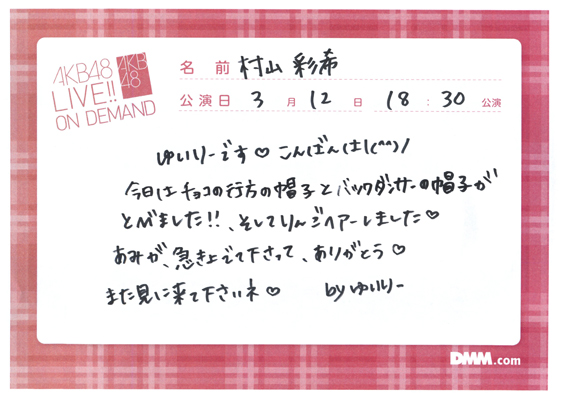 AKB48
LIVE!!
ON DEMAND
AKB
48
名前 村山 彩希
公演日 3月12日 18:30公演
ゆいりーです♡ こんばんは\(^^)/
今日はチョコの行方の帽子とバックダンサーの帽子が
とべました!!、そしてりんごヘアーしました♡
あみが、急きょでて下さって、ありがとう♡
また見に来て下さいネ♡ byゆいりー
DMM.com